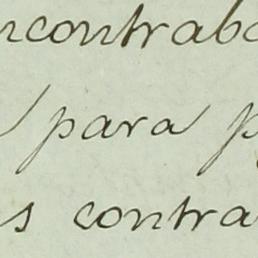 ncontrab
para p
s contra